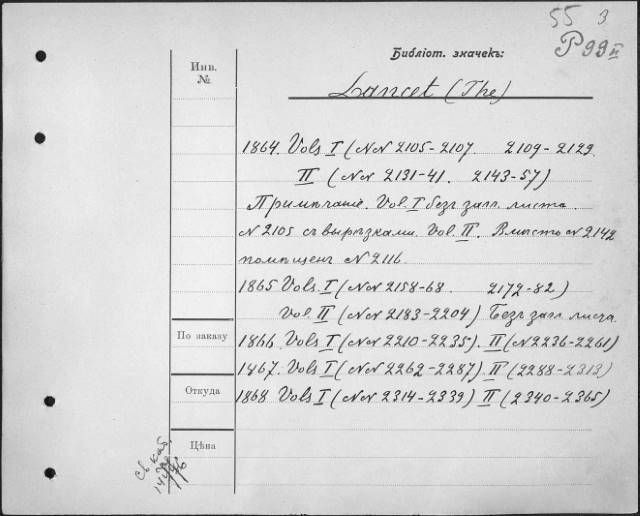 55 3
P 99 II
Библіот. значекъ:
Инв.
№
Lancet (The)
1864. Vols I (NN 2105-2107. 2109-2129.
II (NN 2131-41. 2143-57)
Примѣчаніе. Vol. I безъ загл. листа.
N 2105 съ вырѣзками. Vol. II. Вмѣсто N 2142
помѣщенъ N 2116.
1865 Vols. I (NN 2158-68. 2172-82)
Vol. II (NN 2183-2204) Безъ загл. листа.
По заказу
1866. Vols I (NN 2210-2235). II (N 2236-2261)
1467. Vols I (NN 2262-2287). II (2288-2313)
Откуда
1868 Vols I (NN 2314-2339) II (2340-2365)
Цѣна